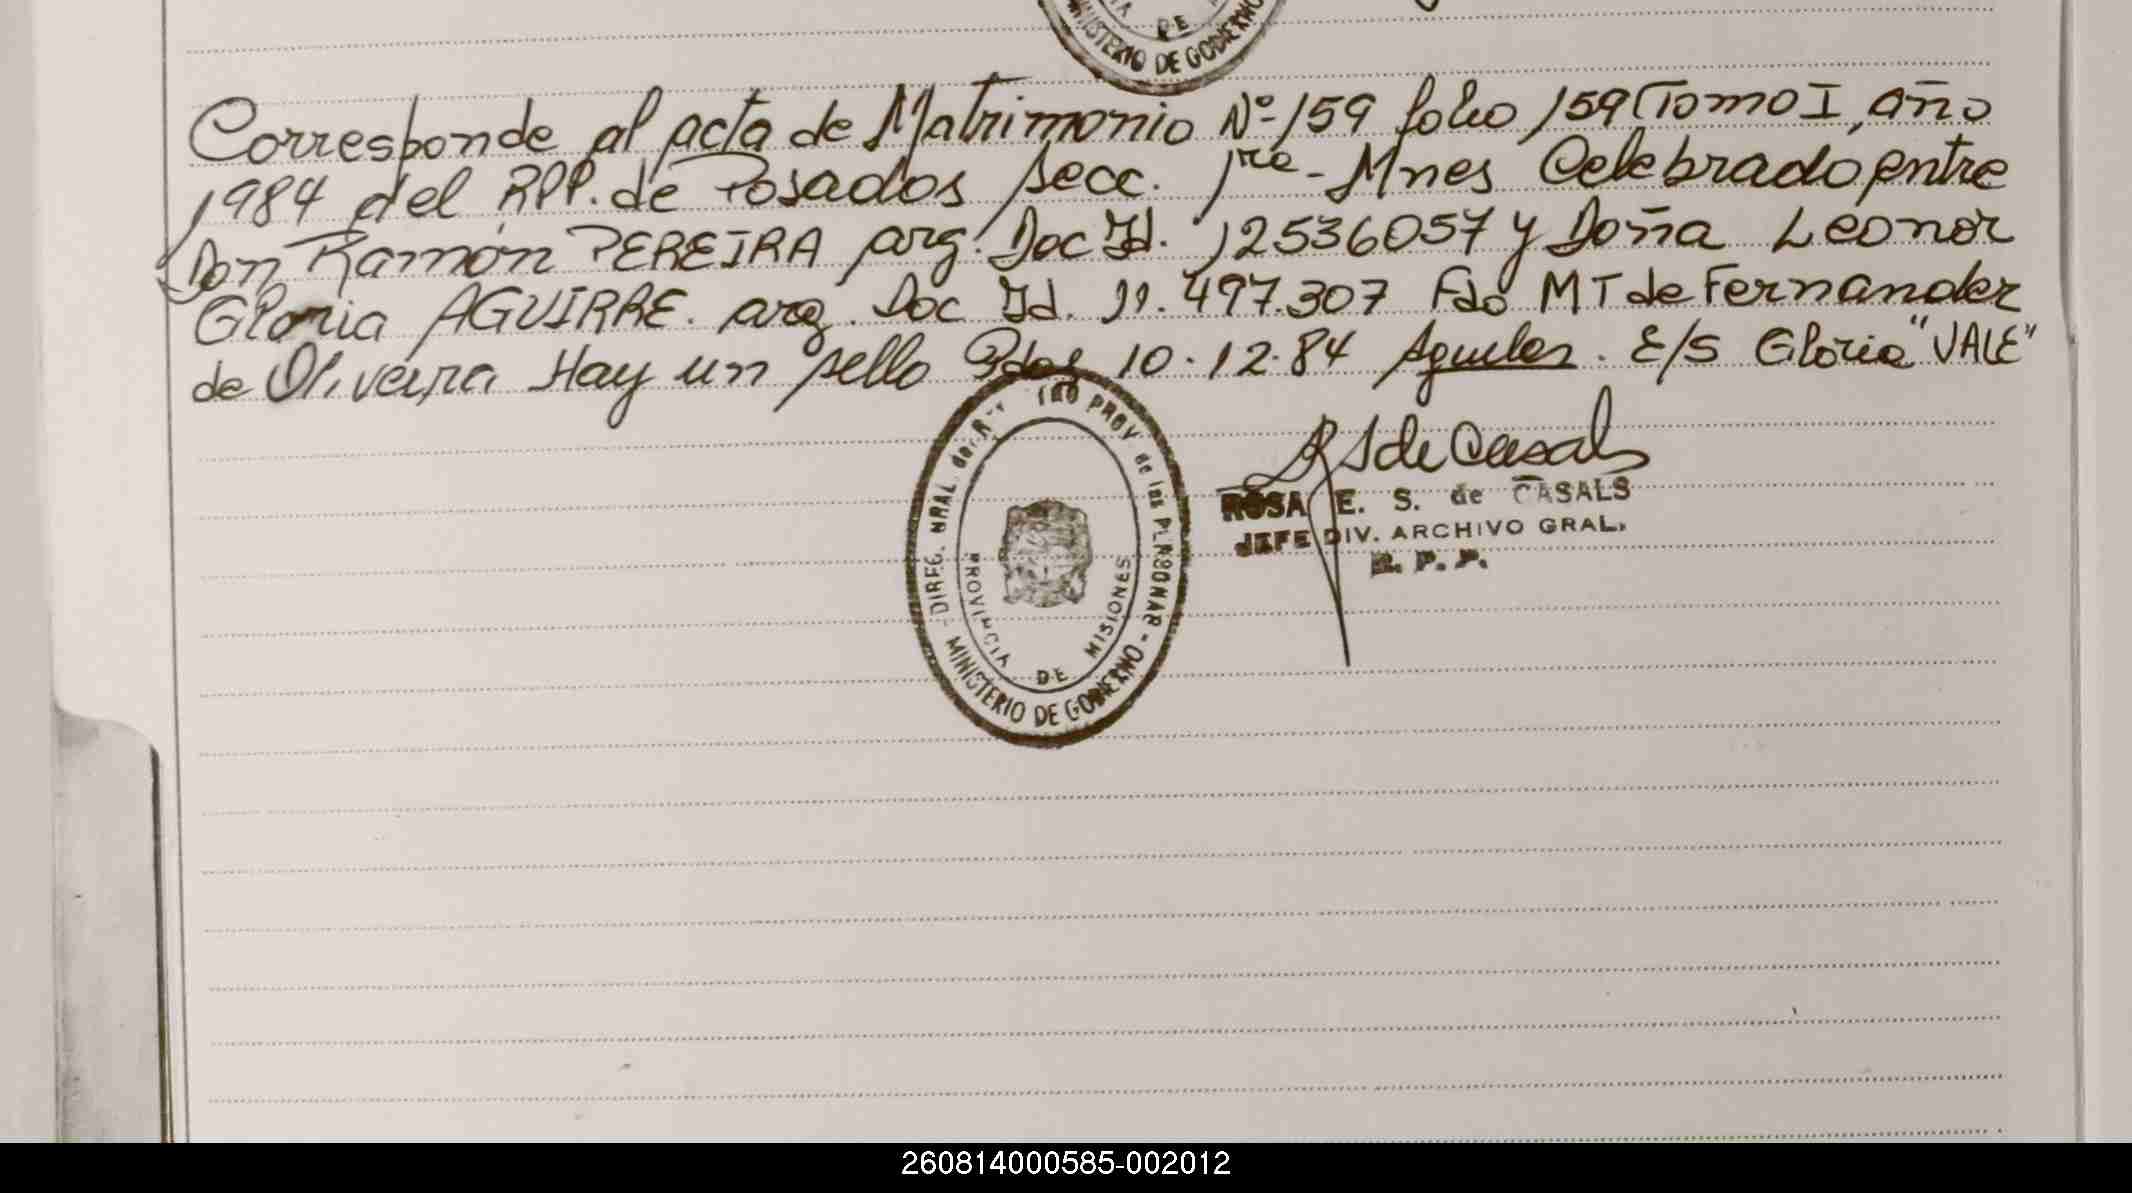 DE
MINISTERIO DE GOBIERNO
Corresponde al acta de Matrimonio Nº 159 folio 159 Tomo I, año
1984 del R.P.P. de Posadas secc. 1ra - Mnes Celebrado entre
Don Ramón PEREIRA arg. Doc Id. 12536057 y Doña Leonor
Gloria AGUIRRE. arg. Doc Id. 11.497.307 Fdo MT de Fernandez
de Oliveira Hay un sello Pdas 10.12.84 E/S Gloria "VALE"
DIREC. GRAL. del PROV de las PERSONAS - MINISTERIO DE GOBIERNO -
PROVINCIA DE MISIONES
RS de Casals
ROSA E. S. de CASALS
JEFE DIV. ARCHIVO GRAL.
R. P. P.
260814000585-002012